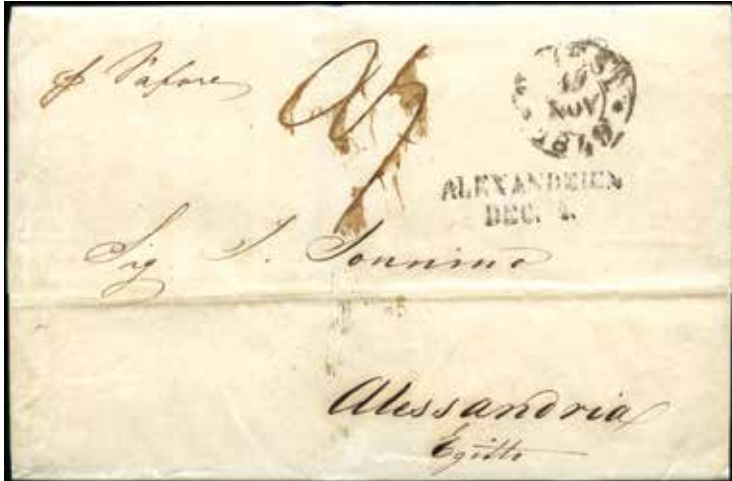 Vapore
NOV
ALEXANDRIEN
DEC. 4.
Sig. S. Sonnino
Alessandria
Egitto